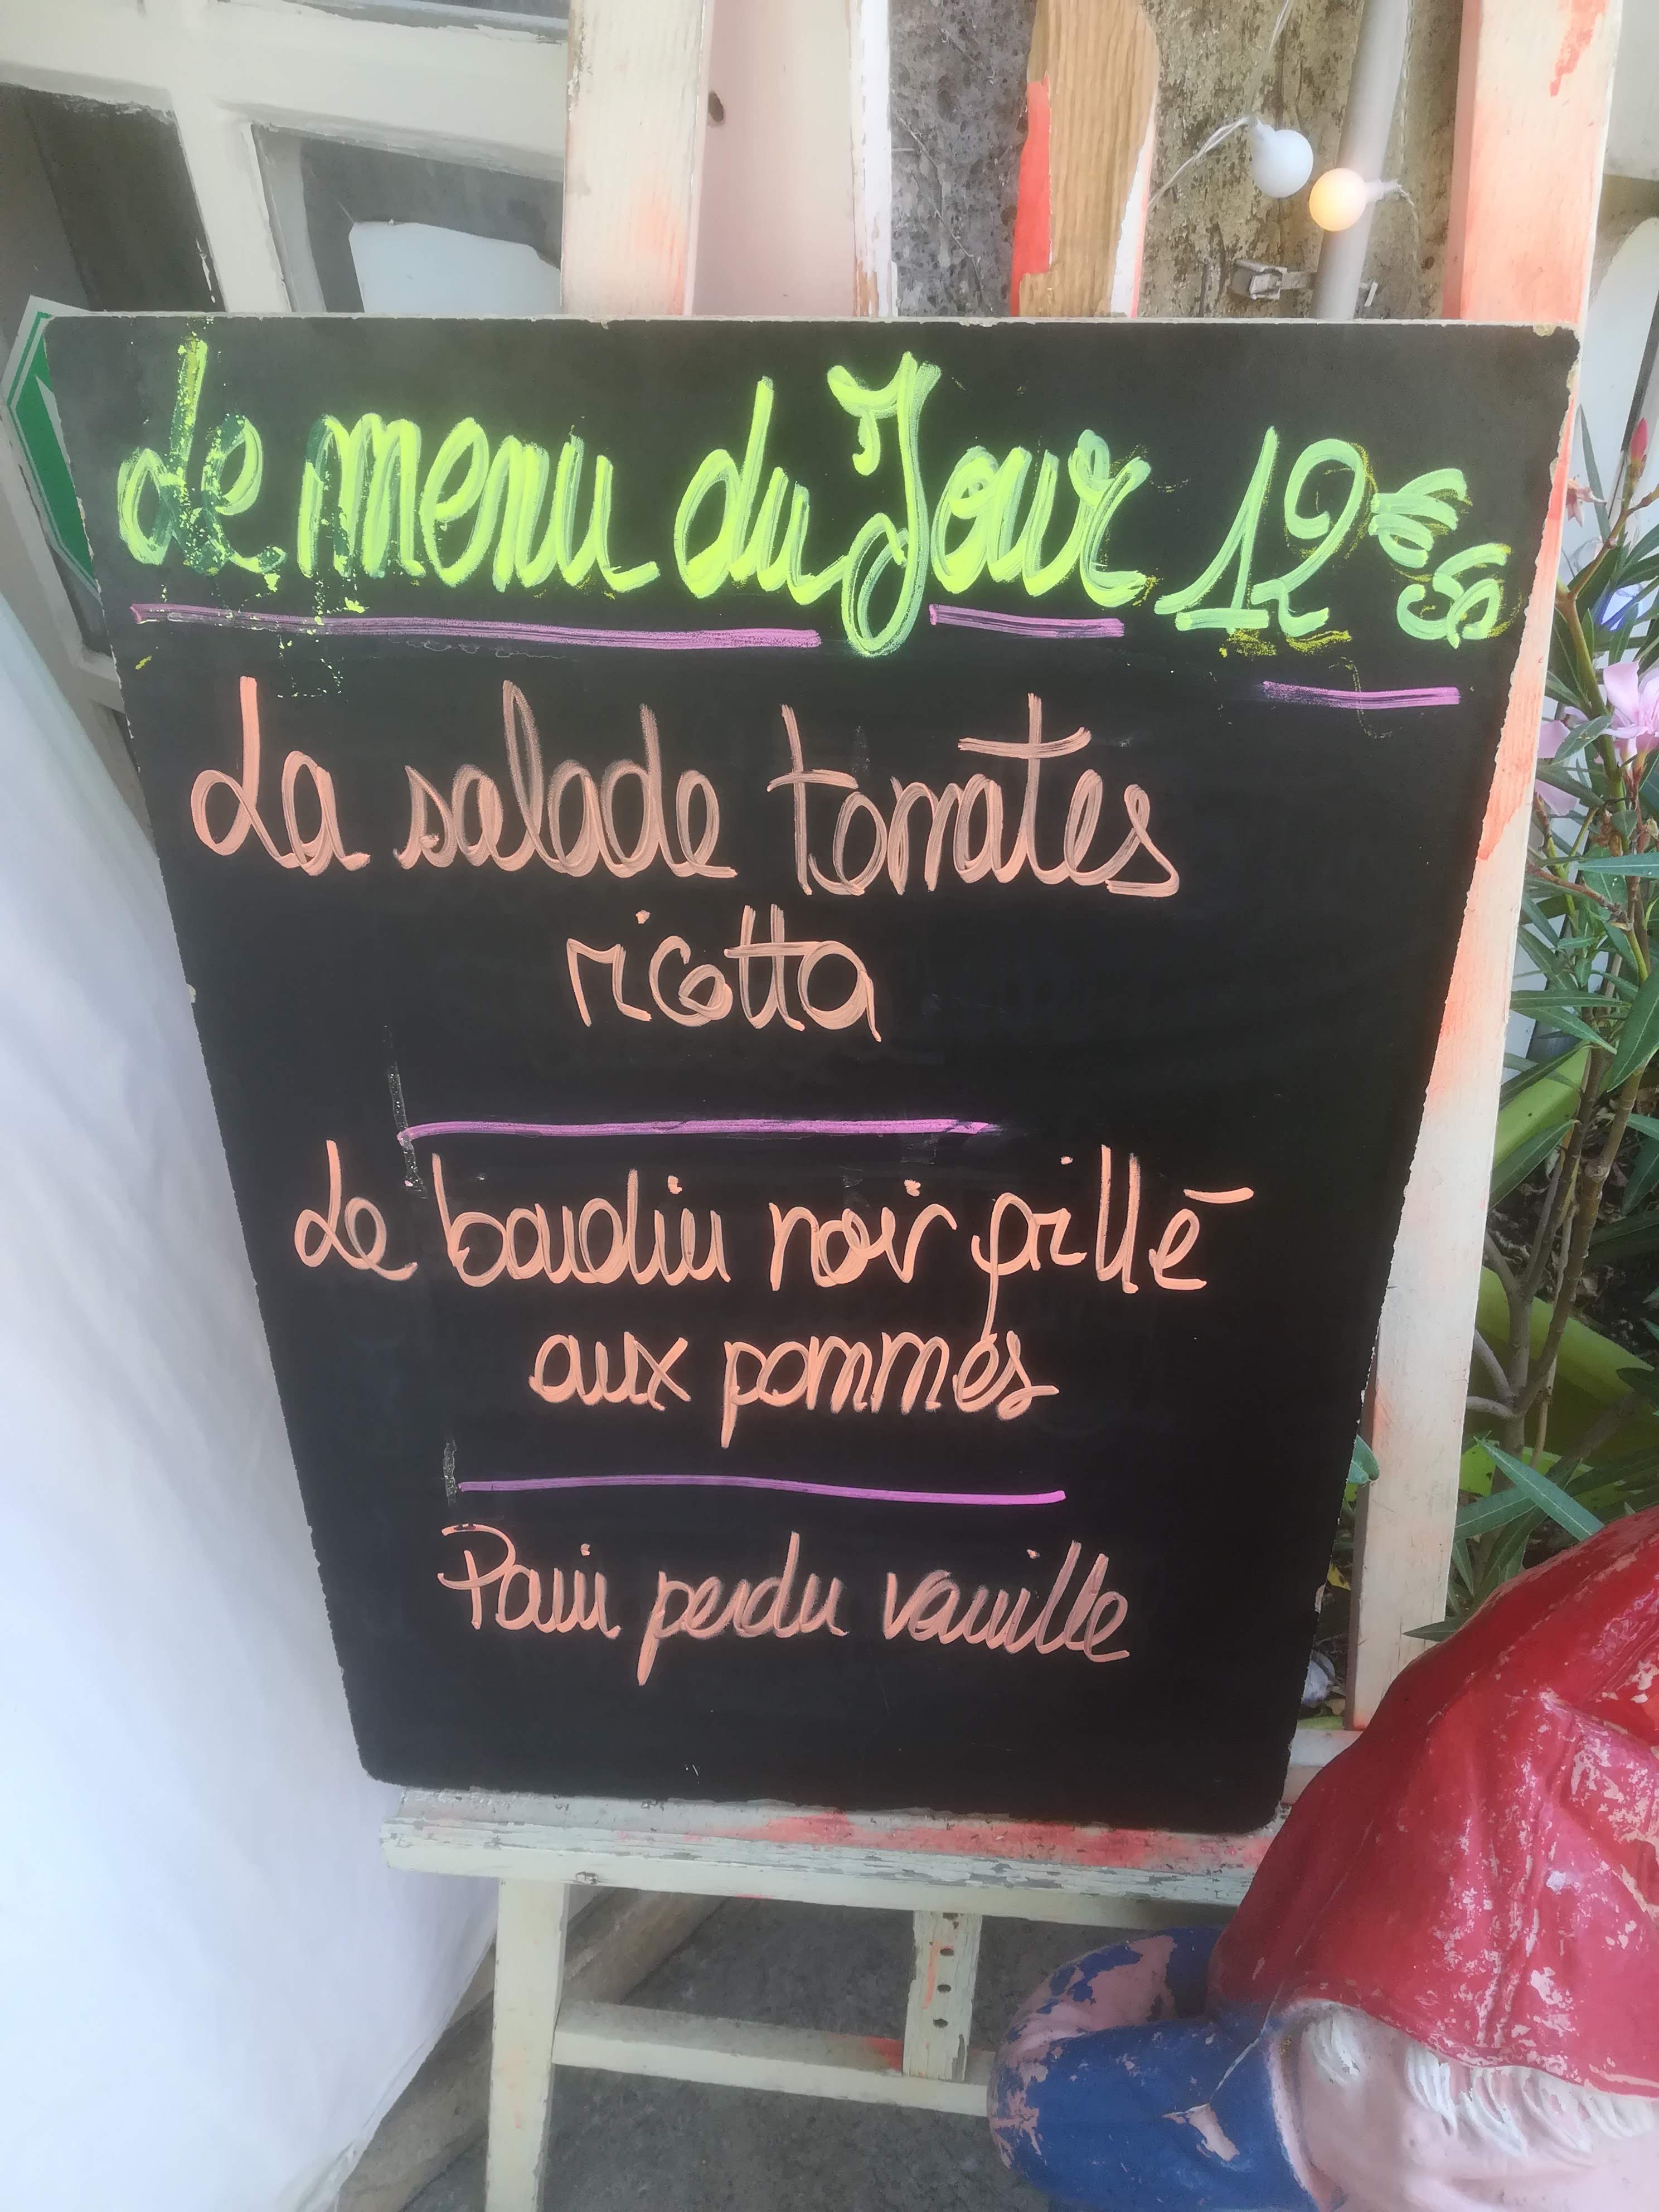 Le menu du Jour 12€50
La salade tomates
ricotta
Le boudin noir grillé
aux pommes
Pain perdu vanille